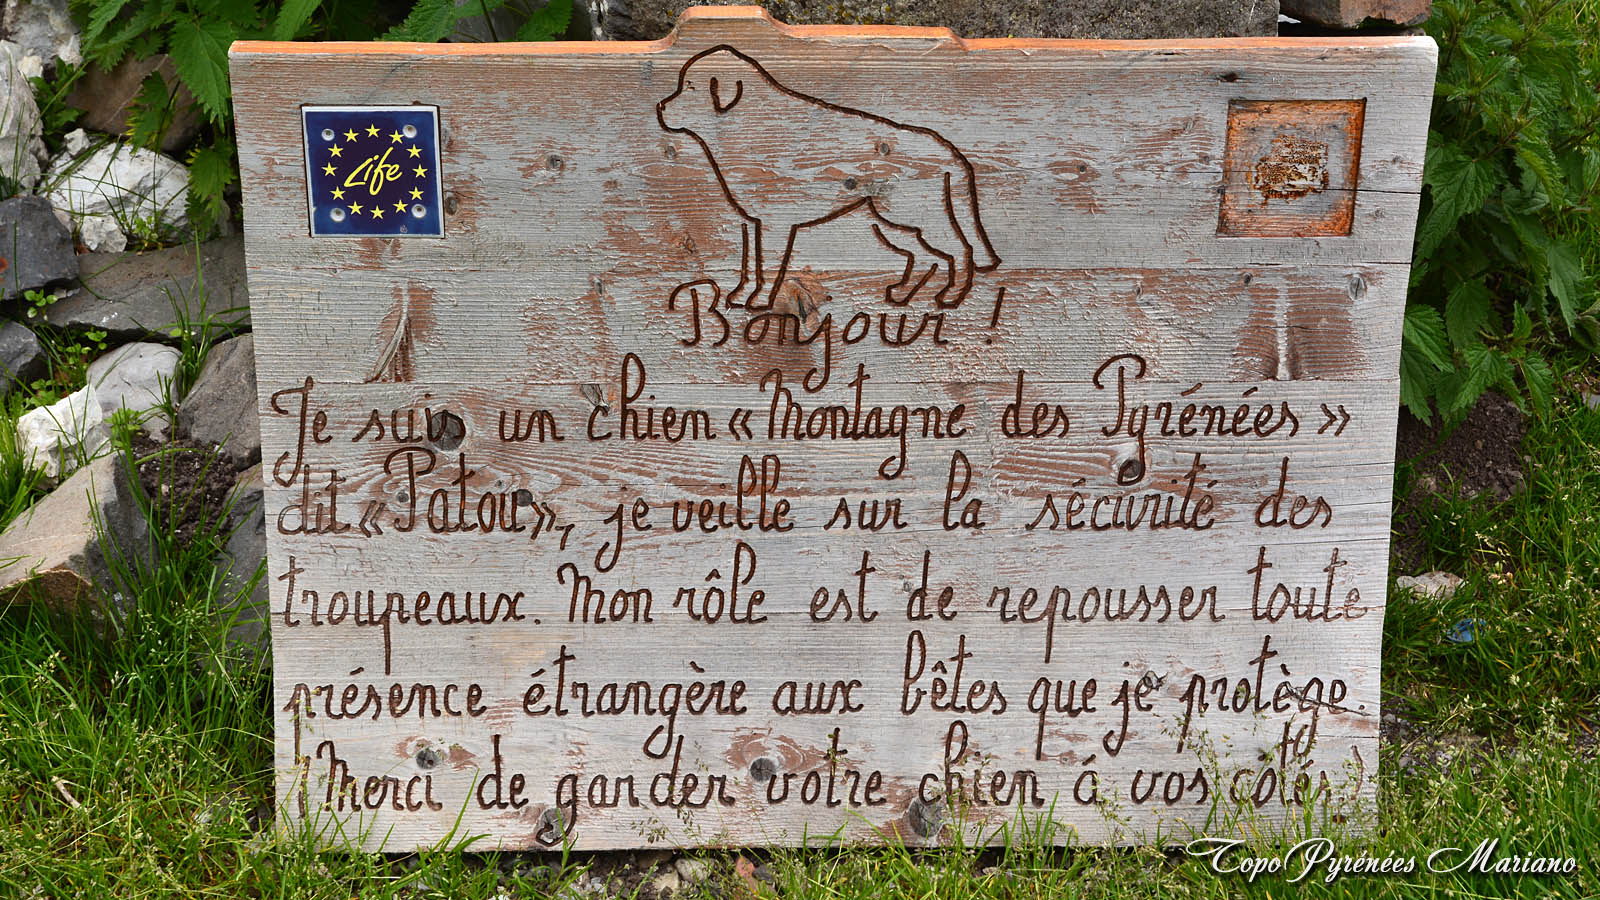 Life
Bonjour !
Je suis un chien « Montagne des Pyrénées »
dit « Patou », je veille sur la sécurité des
troupeaux. Mon rôle est de repousser toute
présence étrangère aux bêtes que je protège.
(Merci de garder votre chien á vos côtés)
TopoPyrénées Mariano